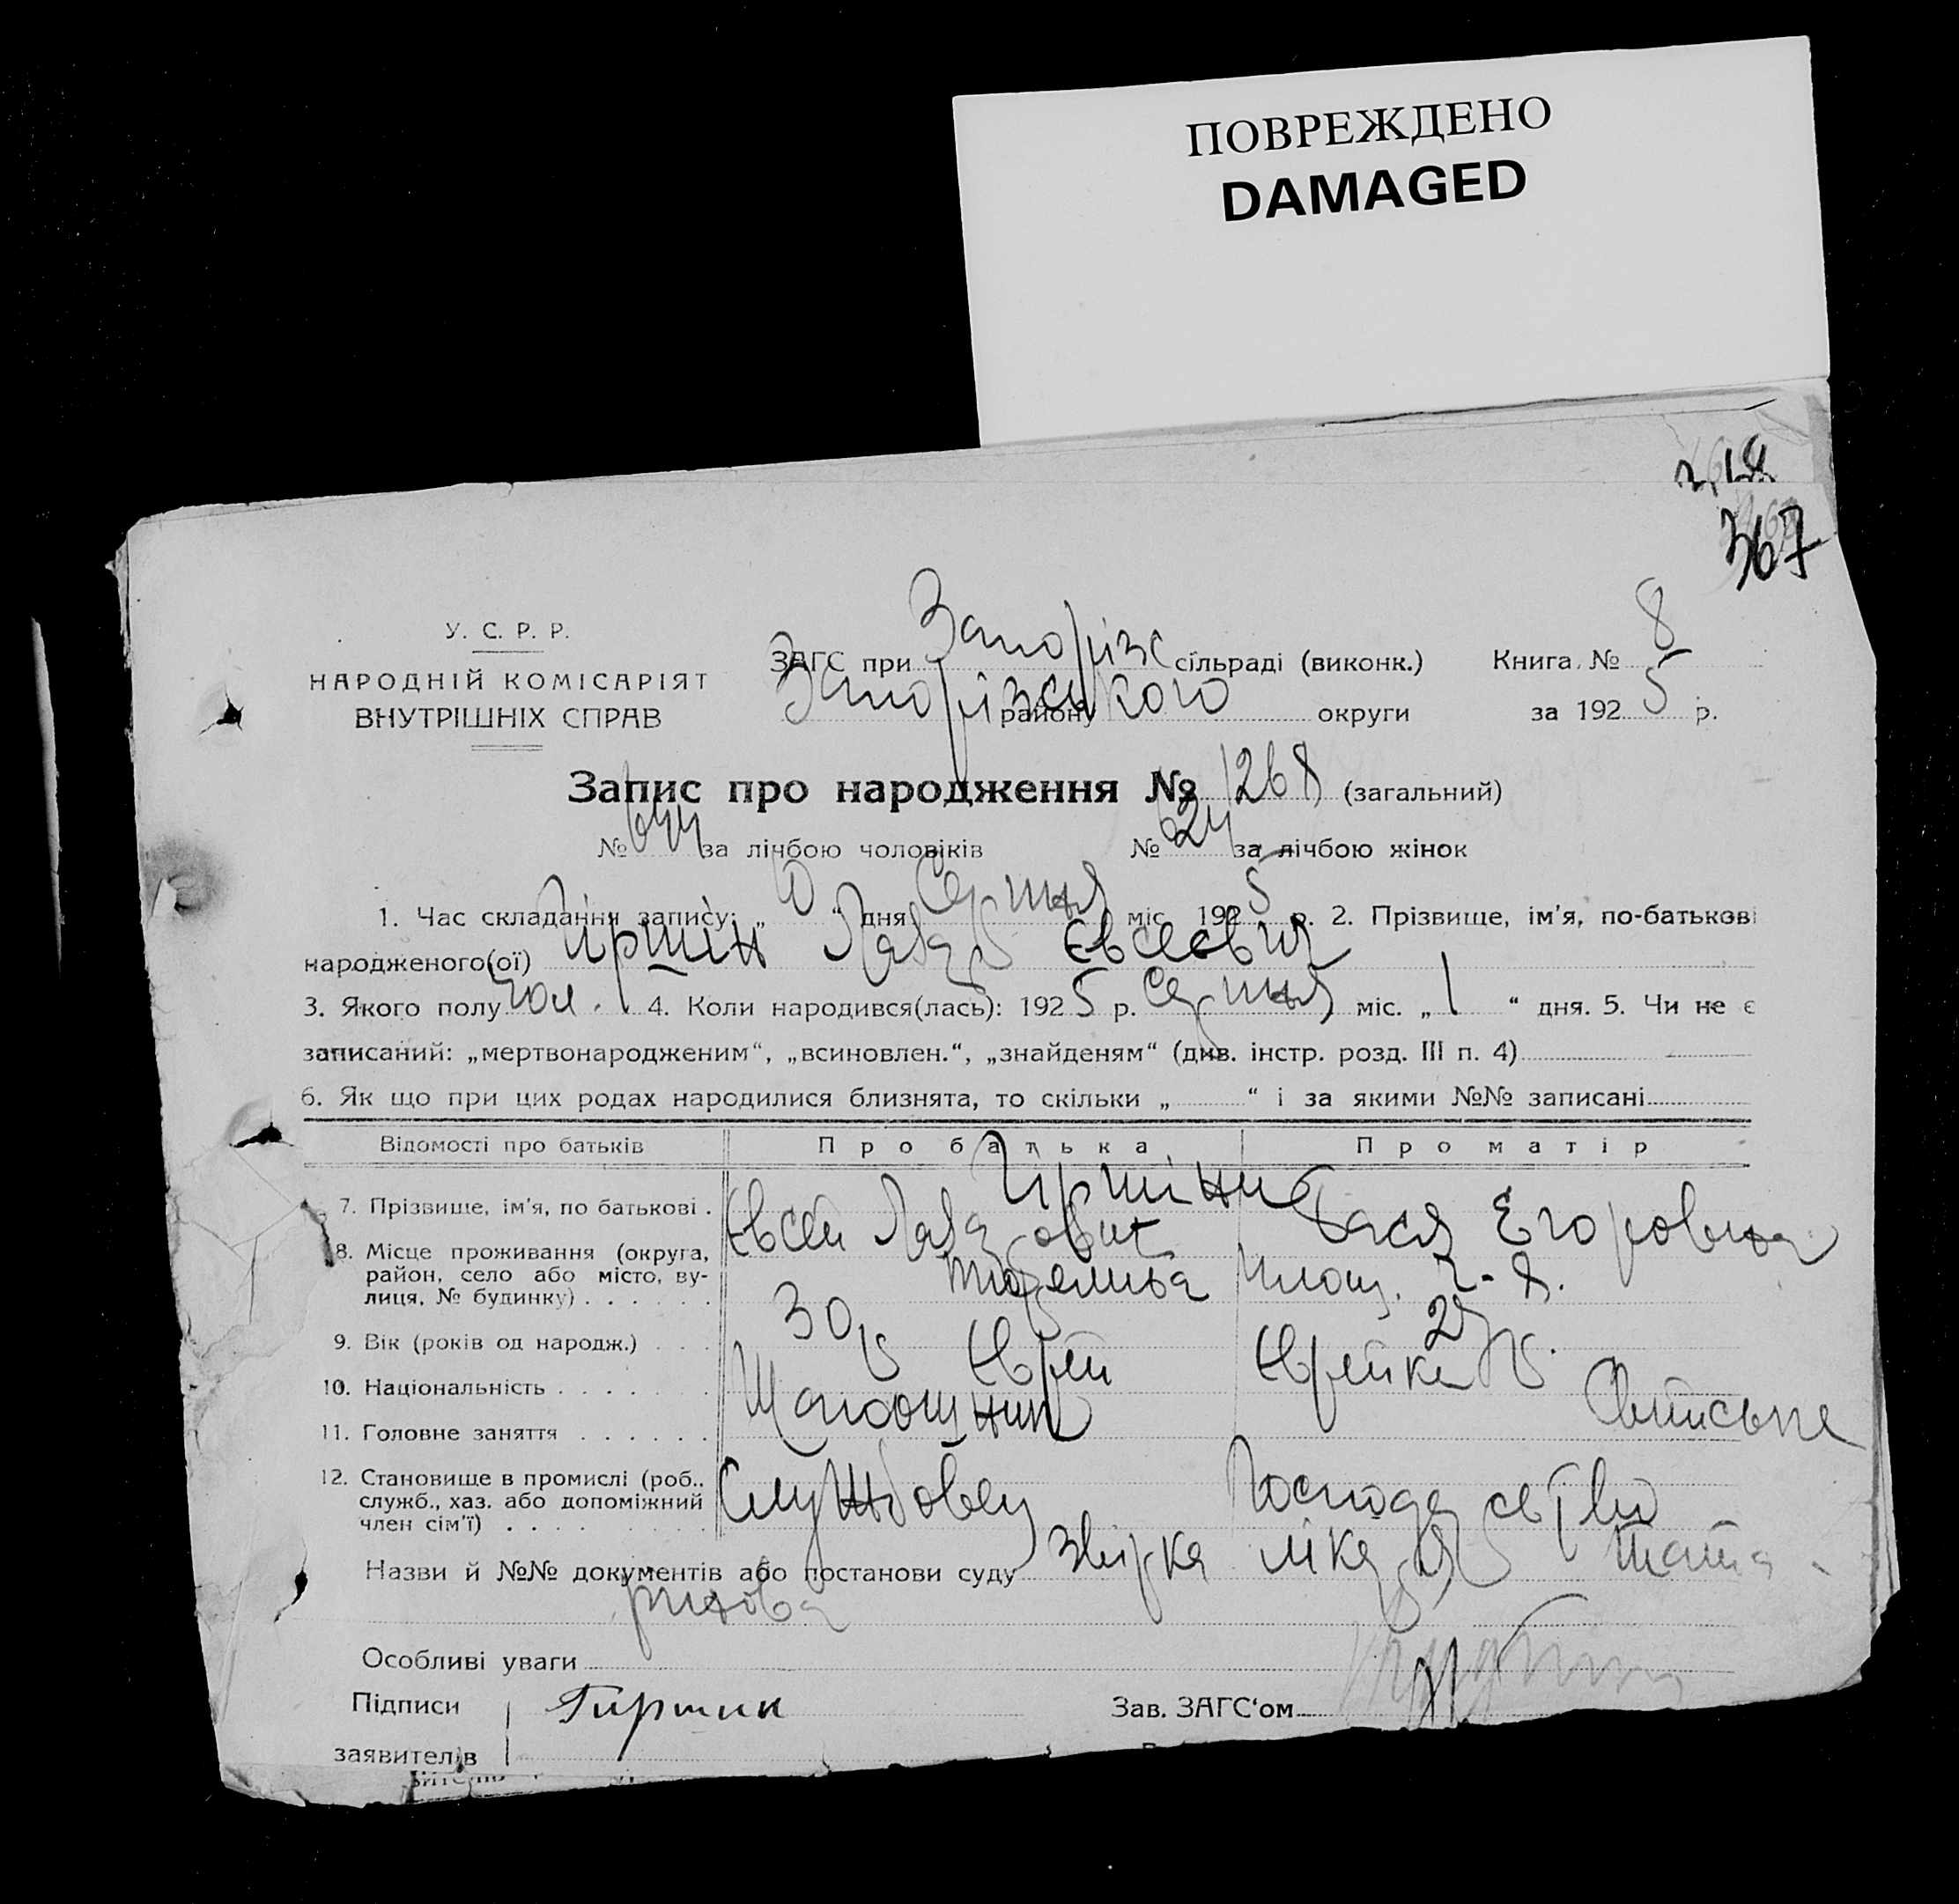 ПОВРЕЖДЕНО
DAMAGED
367
У. С. Р. Р.
НАРОДНІЙ КОМІСАРІЯТ
ВНУТРІШНІХ СПРАВ
ЗАГС при Запорізс сільраді (виконк.) Книга № 8
Запорізського району округи за 1925 р.
Запис про народження № 1268 (загальний)
№ 644 за лічбою чоловіків № 624 за лічбою жінок
1. Час складання запису: „10“ дня Серпня міс. 1925 р. 2. Прізвище, ім'я, по-батькові
народженого(ої) Гіршін Лазар Євсеєвич
3. Якого полу чол. 4. Коли народився(лась): 1925 р. Серпня міс. „1“ дня. 5. Чи не є
записаний: „мертвонародженим“, „всиновлен.“, „знайденям“ (див. інстр. розд. III п. 4)
6. Як що при цих родах народилися близнята, то скільки „ “ і за якими №№ записані
Відомості про батьків Про батька Про матір
Гіршіни
7. Прізвище, ім'я, по батькові . Євсей Лазарович Бася Егоровна
8. Місце проживання (округа,
район, село або місто, ву-
лиця, № будинку) . . . . . . площ.
9. Вік (років од народж.) . . . 30 р
10. Національність . . . . . . . Єврей Єврейка
11. Головне заняття . . . . . .
12. Становище в промислі (роб.,
служб., хаз. або допоміжний
член сім'ї) . . . . Службовец Господарство
Назви й №№ документів або постанови суду лікаря
Особливі уваги
Підписи Гиршин Зав. ЗАГС'ом
заявителів